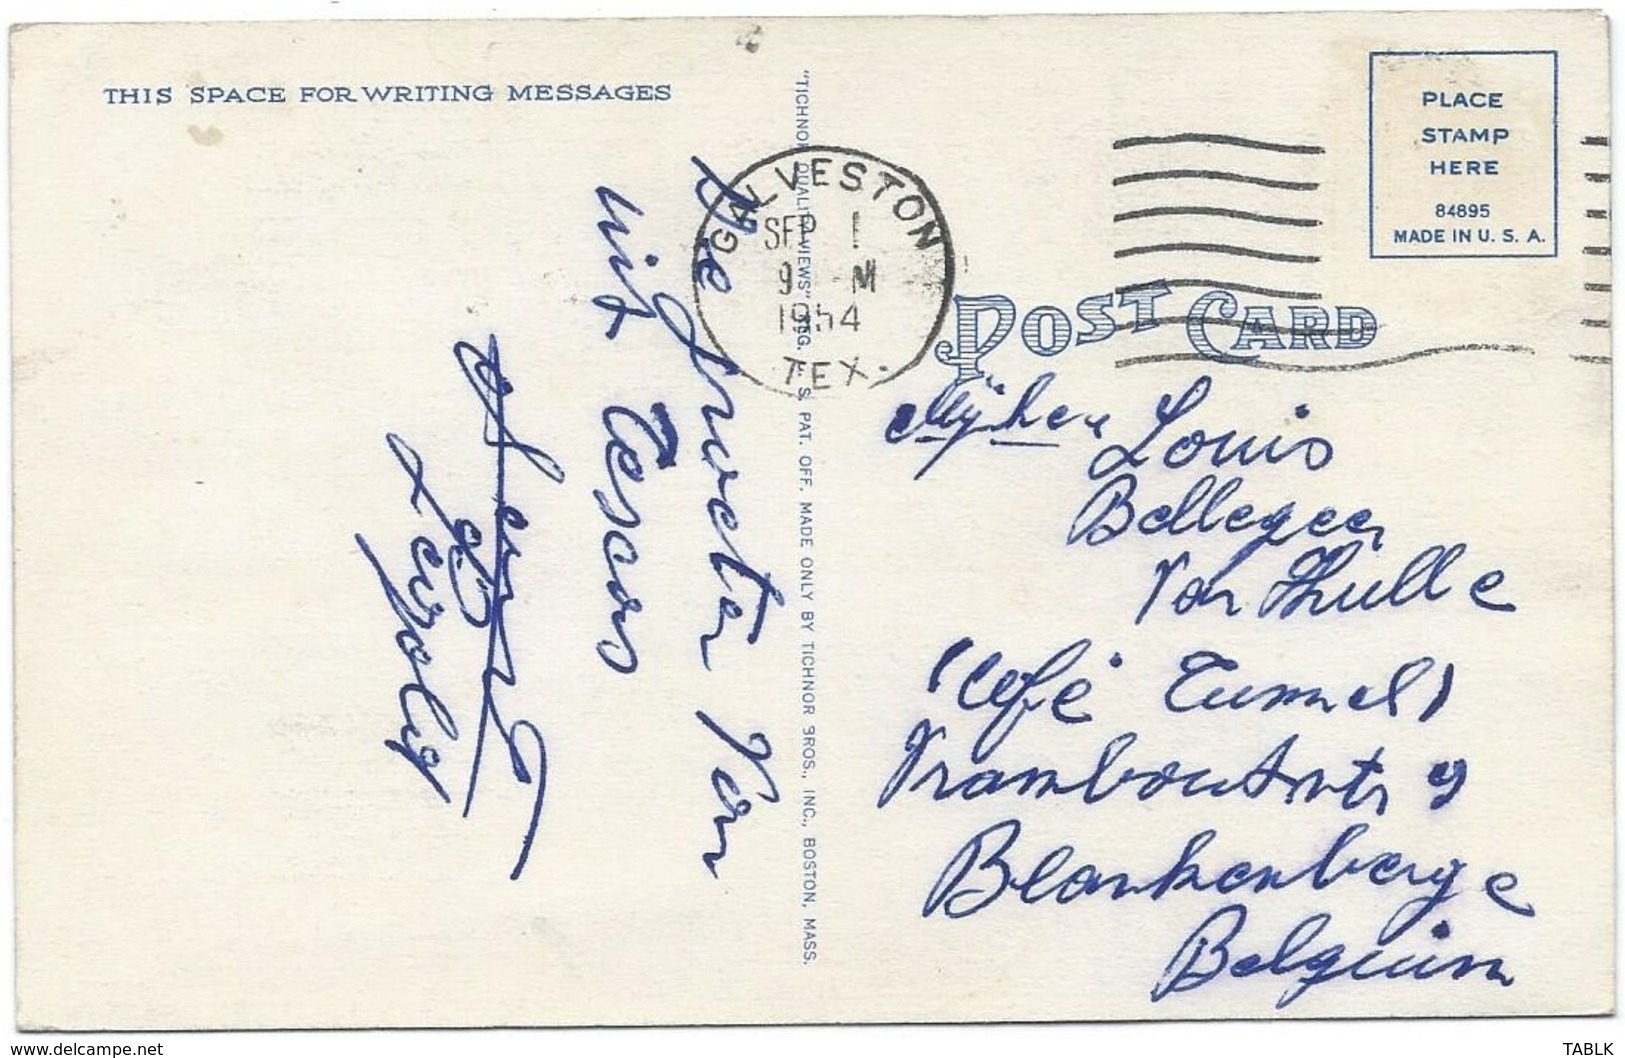 THIS SPACE FOR WRITING MESSAGES
De groeten van
uit Texas
"TICHNOR QUALITY VIEWS" REG. U. S. PAT. OFF. MADE ONLY BY TICHNOR BROS., INC., BOSTON, MASS.
GALVESTON
SEP 1
9 M
1954
TEX.
PLACE
STAMP
HERE
84895
MADE IN U. S. A.
POST CARD
Mijnheer Louis
Bellegeer
Van Hulle
(Café Tunnel)
Blankenberge
Belguim
www.delcampe.net
TABLK